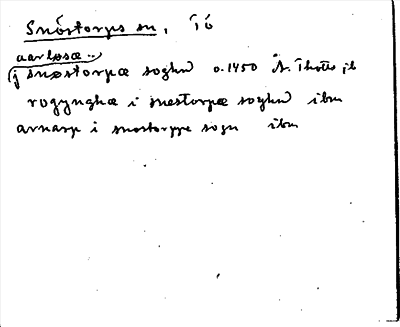 Snöstorps sn, Tö
aarløsæ ..
j snøstorpæ soghn o.1450 Å. Thotts jb
røgynghæ i snøstorpæ soghn ibm
arnarp i snostorppe sogn ibm